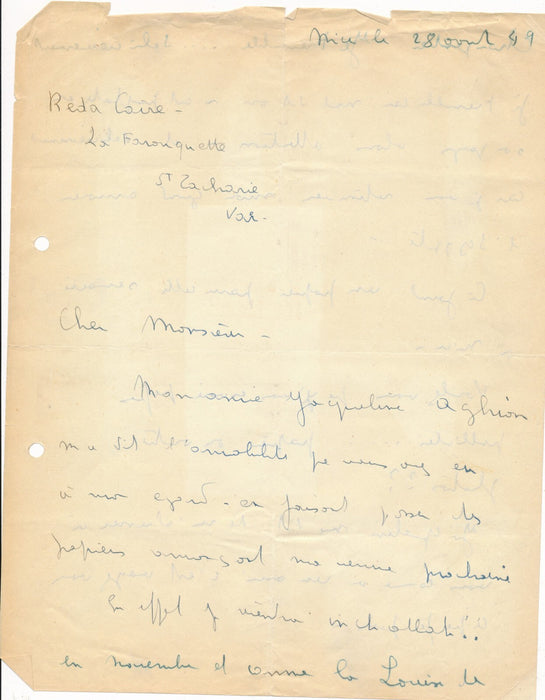 Nice le 28 aout 49
Réda Caire -
La Farouquette
St Zacharie
Var -
Cher Monsieur -
Mon amie Jaqueline Aghion
m'a dit l'amabilité que vous avez eu
à mon égard - en faisant passer des
papiers annonçant ma venue prochaine
En effet je viendrai inch allah!..
en novembre et